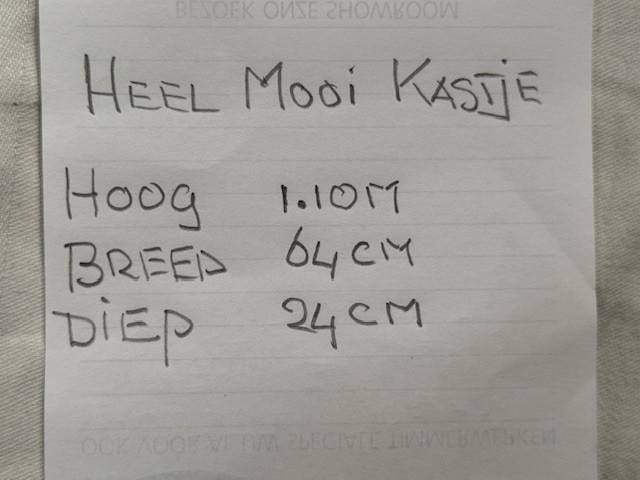 BEZOEK ONZE SHOWROOM
HEEL MOOI KASTJE
HOOG 1.10M
BREED 64CM
DIEP 24CM
OOK VOOR AL UW SPECIALE TIMMERWERKEN